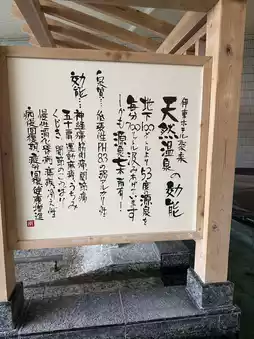 伊東ホテル聚楽
天然温泉の効能
地下100メートルより53度源泉を
毎分700リットル汲み上げています
しかも源泉七本所有!
泉質…低張性PH8.3の弱アルカリ性
効能…神経痛 筋肉痛 関節痛
五十肩 運動麻痺 うちみ
くじき 関節のこわばり
慢性消化器病 痔病 冷え性
病後回復 疲労回復 健康増進